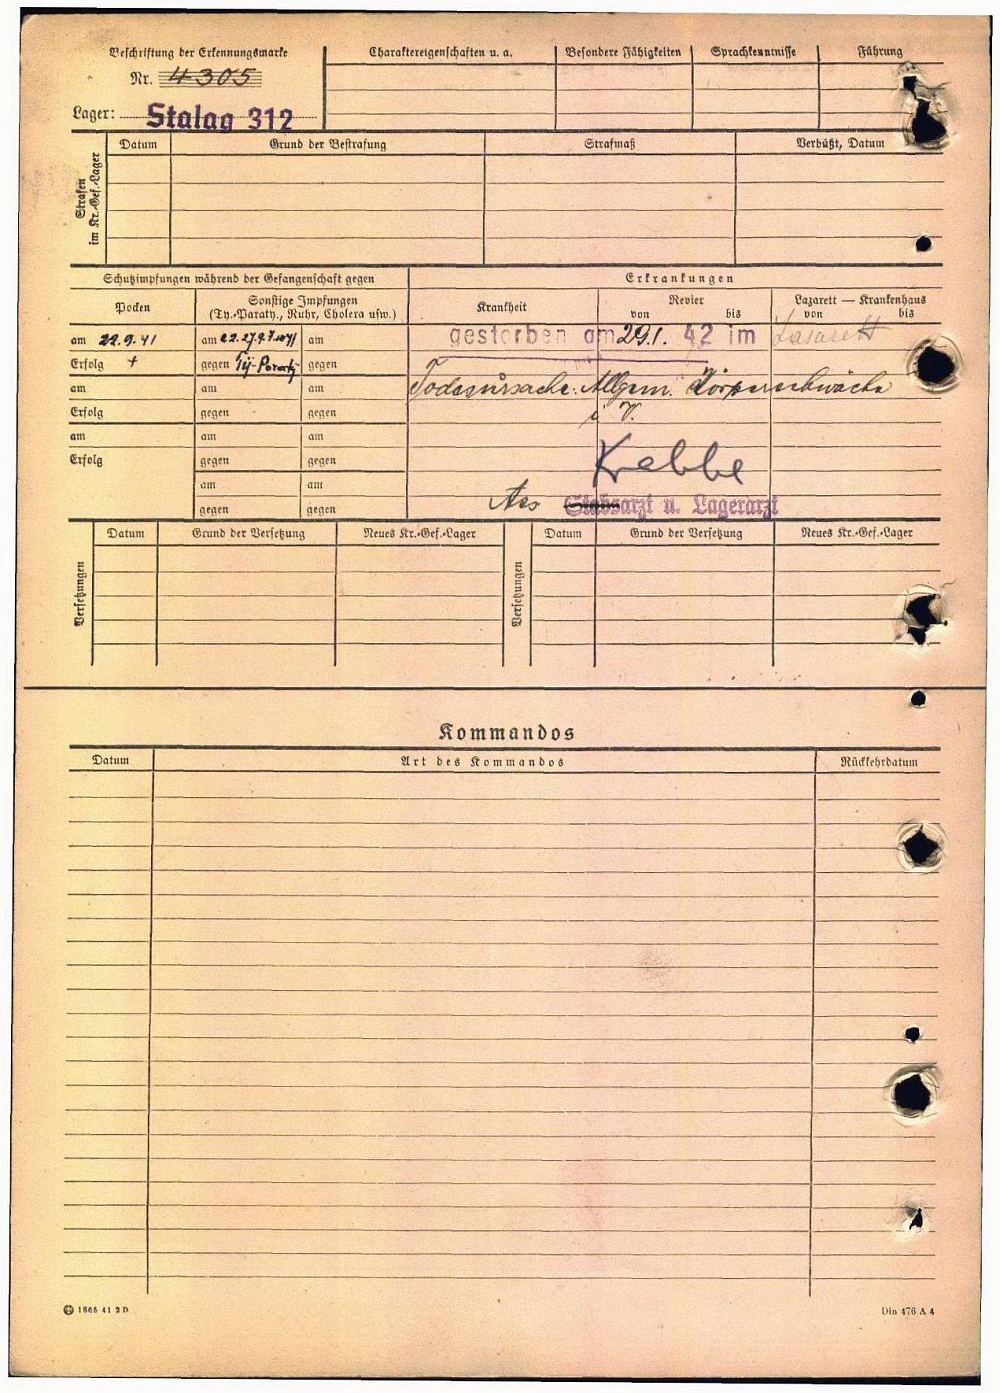 Beschriftung der Erkennungsmarke
Nr. 4305
Lager: Stalag 312
Charaktereigenschaften u. a.
Besondere Fähigkeiten
Sprachkenntnisse
Führung
Strafen im Kr.-Gef.-Lager
Datum
Grund der Bestrafung
Strafmaß
Verbüßt, Datum
Schutzimpfungen während der Gefangenschaft gegen
Erkrankungen
Pocken
Sonstige Impfungen
(Ty.-Paraty., Ruhr, Cholera usw.)
Krankheit
Revier
von bis
Lazarett — Krankenhaus
von bis
am 22.9.41 am am
gestorben am 29.1. 42 im Lazarett
Erfolg + gegen Ty-Paraty gegen
am am am
Todesursache: Allgem. Körperschwäche
Erfolg gegen gegen
i. V.
am am am
Erfolg gegen gegen
Krebbe
am am
gegen gegen
Ass Stabsarzt u. Lagerarzt
Versetzungen
Datum
Grund der Versetzung
Neues Kr.-Gef.-Lager
Versetzungen
Datum
Grund der Versetzung
Neues Kr.-Gef.-Lager
Kommandos
Datum
Art des Kommandos
Rückkehrdatum
1865 41 2 D
Din 476 A 4